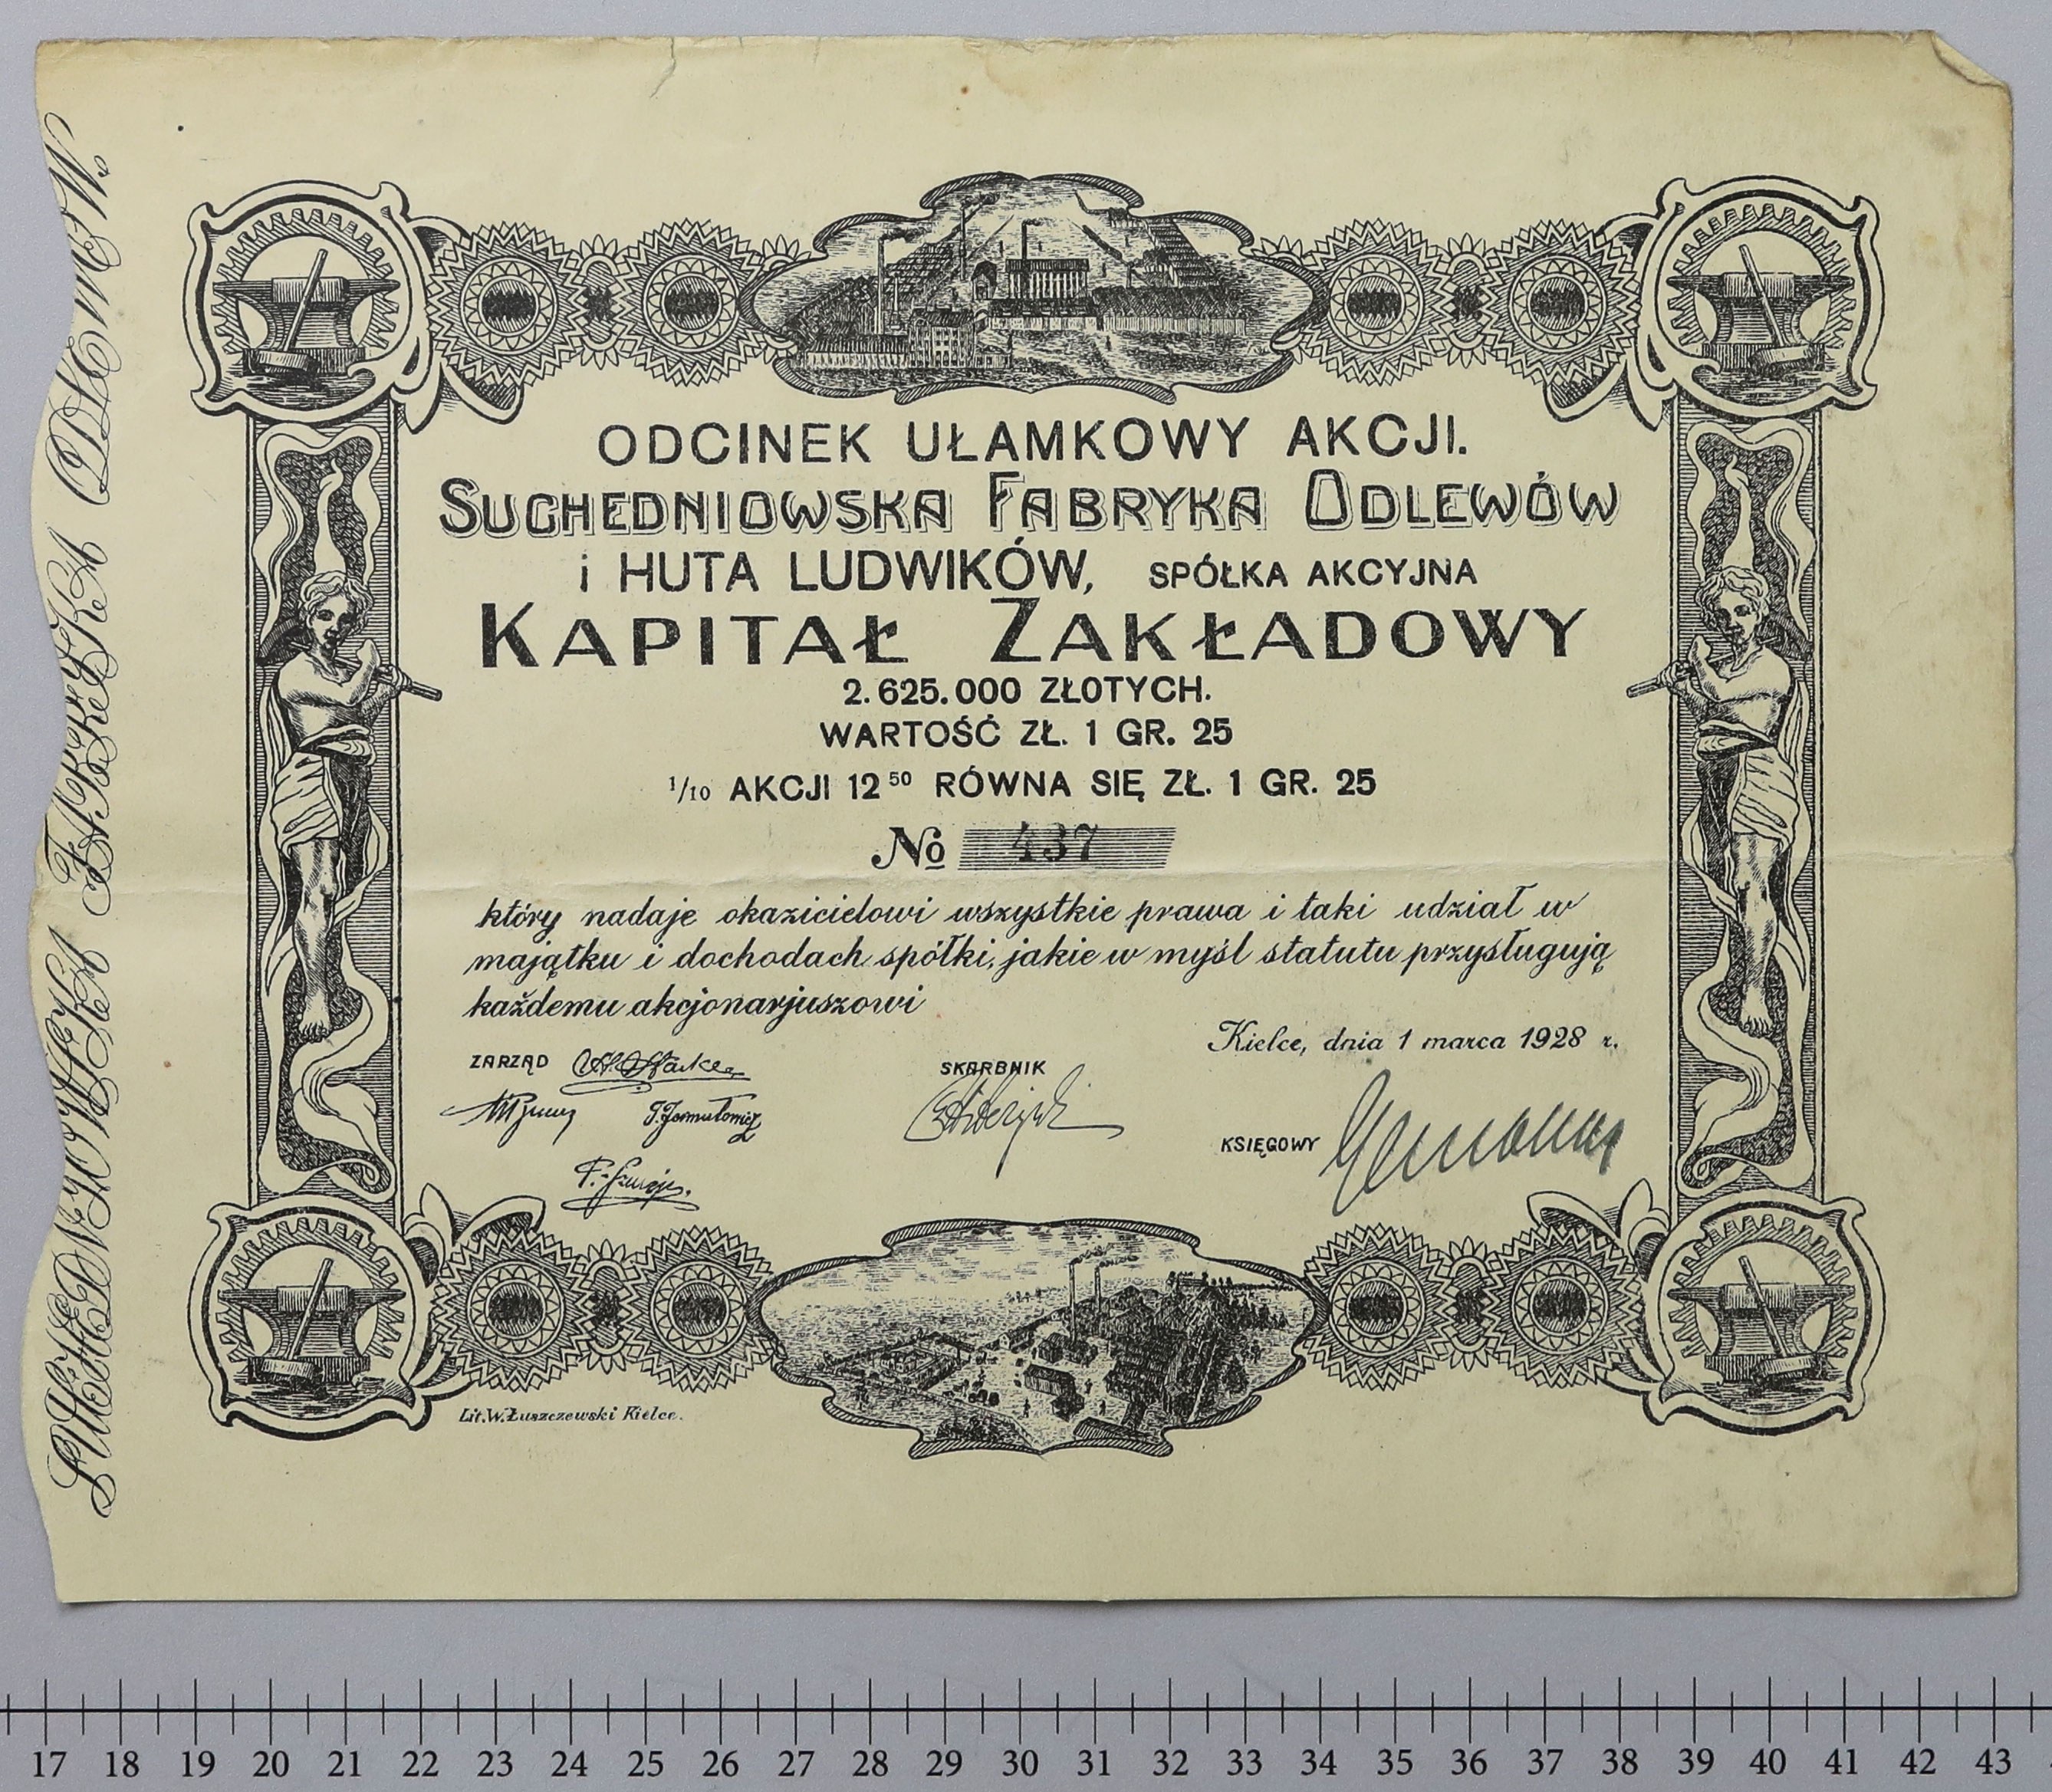 ODCINEK UŁAMKOWY AKCJI.
SUCHEDNIOWSKA FABRYKA ODLEWÓW
i HUTA LUDWIKÓW, SPÓŁKA AKCYJNA
KAPITAŁ ZAKŁADOWY
2.625.000 ZŁOTYCH.
WARTOŚĆ ZŁ. 1 GR. 25
1/10 AKCJI 12 50 RÓWNA SIĘ ZŁ. 1 GR. 25
No 437
który nadaje okazicielowi wszystkie prawa i taki udział w
majątku i dochodach spółki, jakie w myśl statutu przysługują
każdemu akcjonarjuszowi
Kielce, dnia 1 marca 1928 r.
ZARZĄD
SKARBNIK
KSIĘGOWY
Lit. W. Łuszczewski Kielce.
SUCHEDNIOWSKA FABRYKA ODLEWÓW.
17 18 19 20 21 22 23 24 25 26 27 28 29 30 31 32 33 34 35 36 37 38 39 40 41 42 43